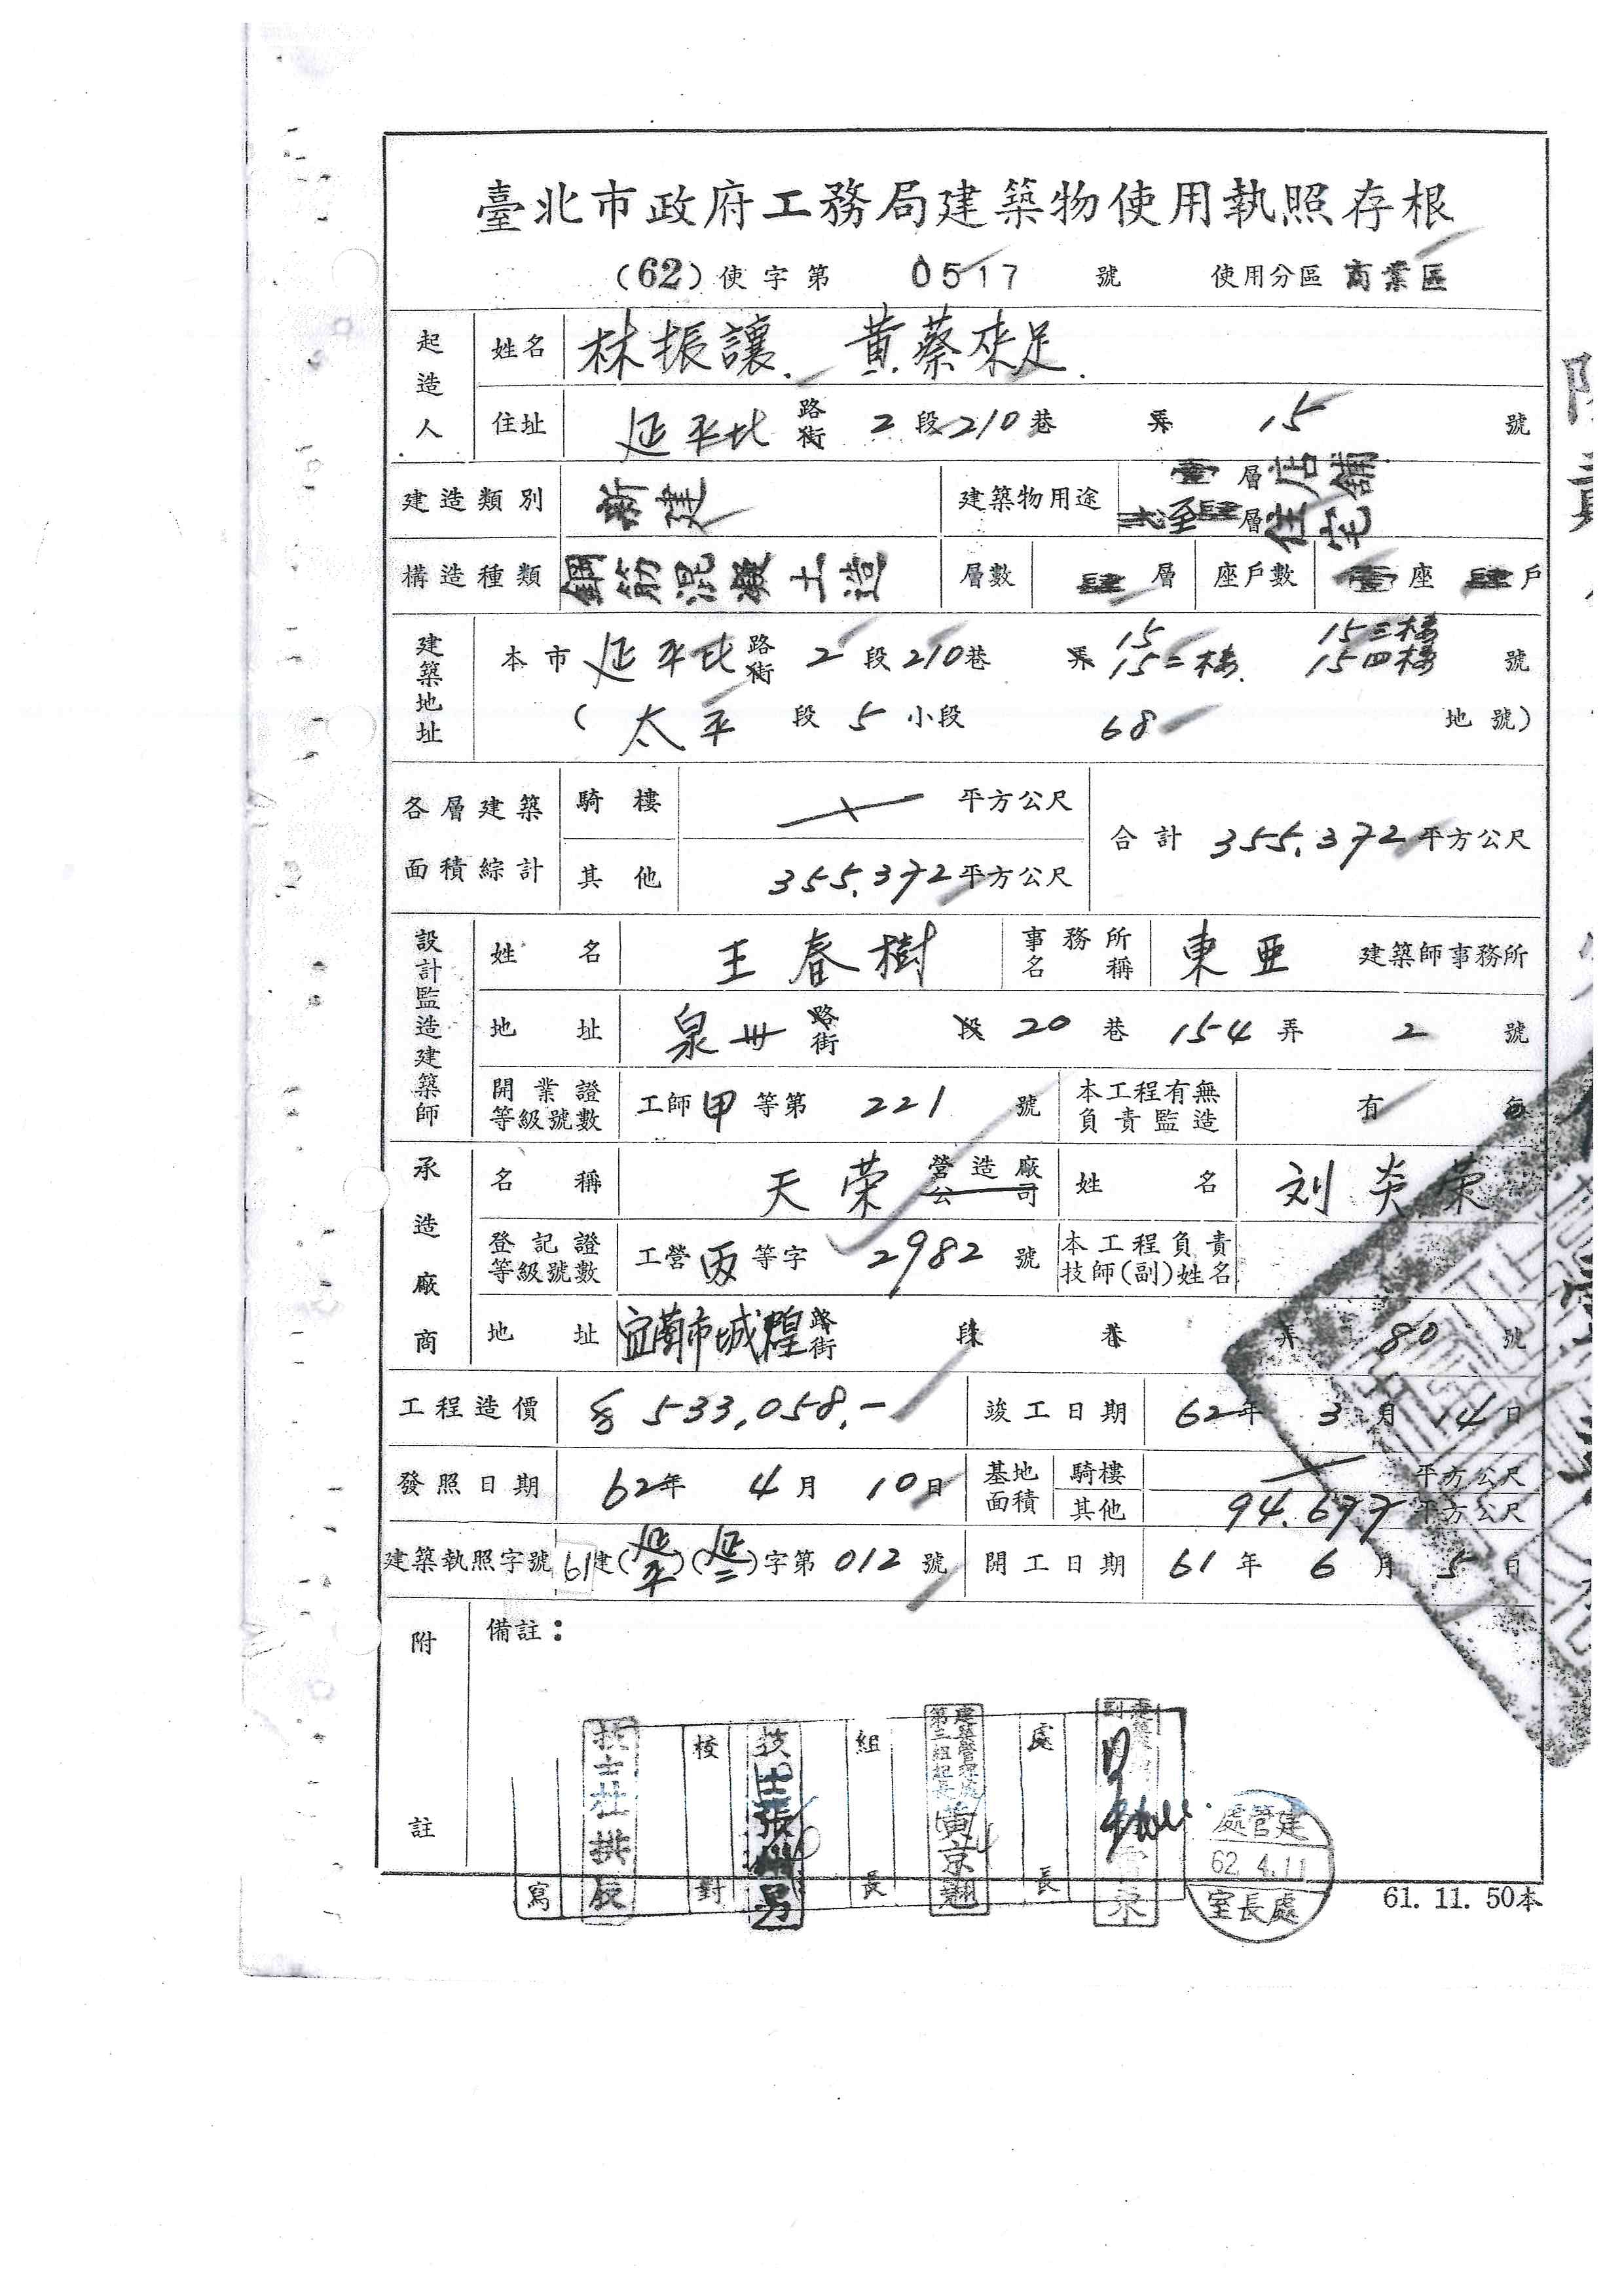 臺北市政府工務局建築物使用執照存根
(62)使字第 0517 號 使用分區 商業區
起造人 姓名 林振讓、黃蔡來足
住址 延平北 路街 2 段 210 巷 弄 15 號
建造類別 新建 建築物用途 壹層店舖
貳至肆層住宅
構造種類 鋼筋混凝土造 層數 肆層 座戶數 壹座 肆戶
建築地址 本市 延平北 路街 2 段 210 巷 弄 15 15二樓 15三樓 15四樓 號
(太平 段 5 小段 68 地號)
各層建築面積綜計 騎樓 平方公尺
其他 355.372 平方公尺 合計 355.372 平方公尺
設計監造建築師 姓名 王春樹 事務所名稱 東亞 建築師事務所
地址 泉州 路街 段 20 巷 154 弄 2 號
開業證等級號數 工師甲等第 221 號 本工程有無負責監造 有
承造廠商 名稱 天荣 營造廠公司 姓名 刘炎荣
登記證等級號數 工營丙等字 2982 號 本工程負責技師(副)姓名
地址 城隍 路街 段 巷 弄 80 號
工程造價 533,058.- 竣工日期 62年 3月 14日
發照日期 62年 4月 10日 基地面積 騎樓 平方公尺
其他 94.677 平方公尺
建築執照字號 61建(延平)(延二)字第 012 號 開工日期 61年 6月 5日
附註 備註：
寫 校對 組長 處長
建築管理處第三組組長 黃京翹
建管處
62.4.11
處長室
61. 11. 50本